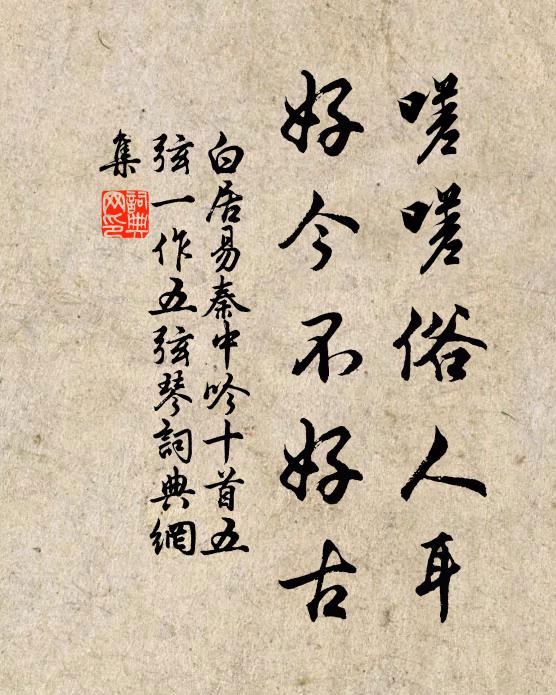 嗟嗟俗人耳
好今不好古
白居易秦中吟十首五
弦一作五弦琴詞典網
集
詞典
网印